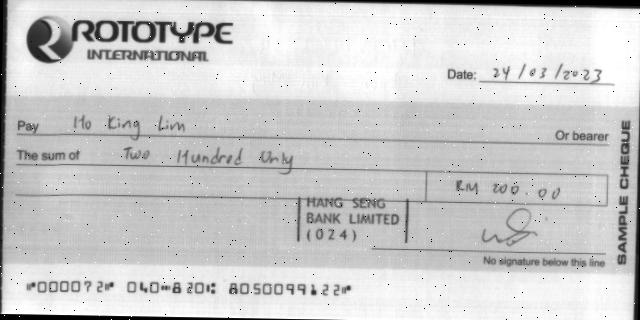 ROTOTYPE
INTERNATIONAL
Date: 24/03/2023
Pay Ho King Lim
Or bearer
The sum of Two Hundred Only
RM 200.00
HANG SENG
BANK LIMITED
(024)
No signature below this line
SAMPLE CHEQUE
"000072" 040"820: 8050099122"